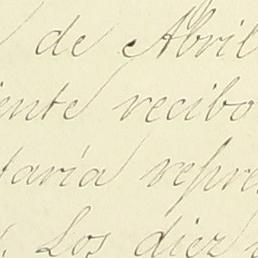 de Abril
iente recibo
taría repre
Los diez